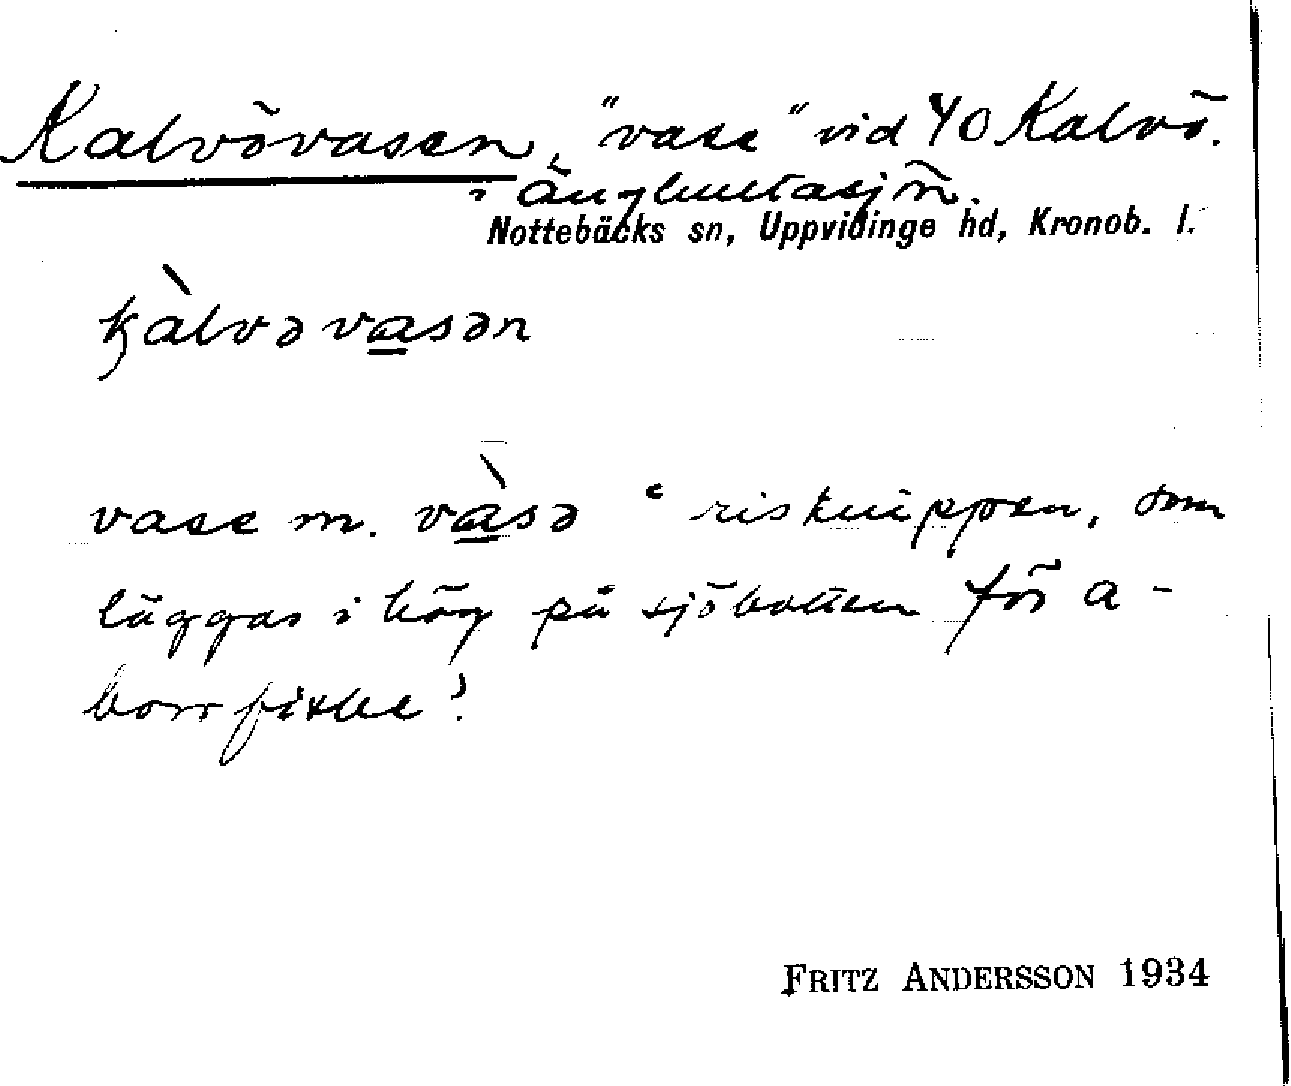 Kalvövasen, "vase" vid 40 Kalvö.
i Änghultasjön.
Nottebäcks sn, Uppvidinge hd, Kronob. l.
kàlvəvasən
vase m. vàsə ‘risknippen, som
läggas i hög på sjöbotten för a-
borrfiske’.
FRITZ ANDERSSON 1934